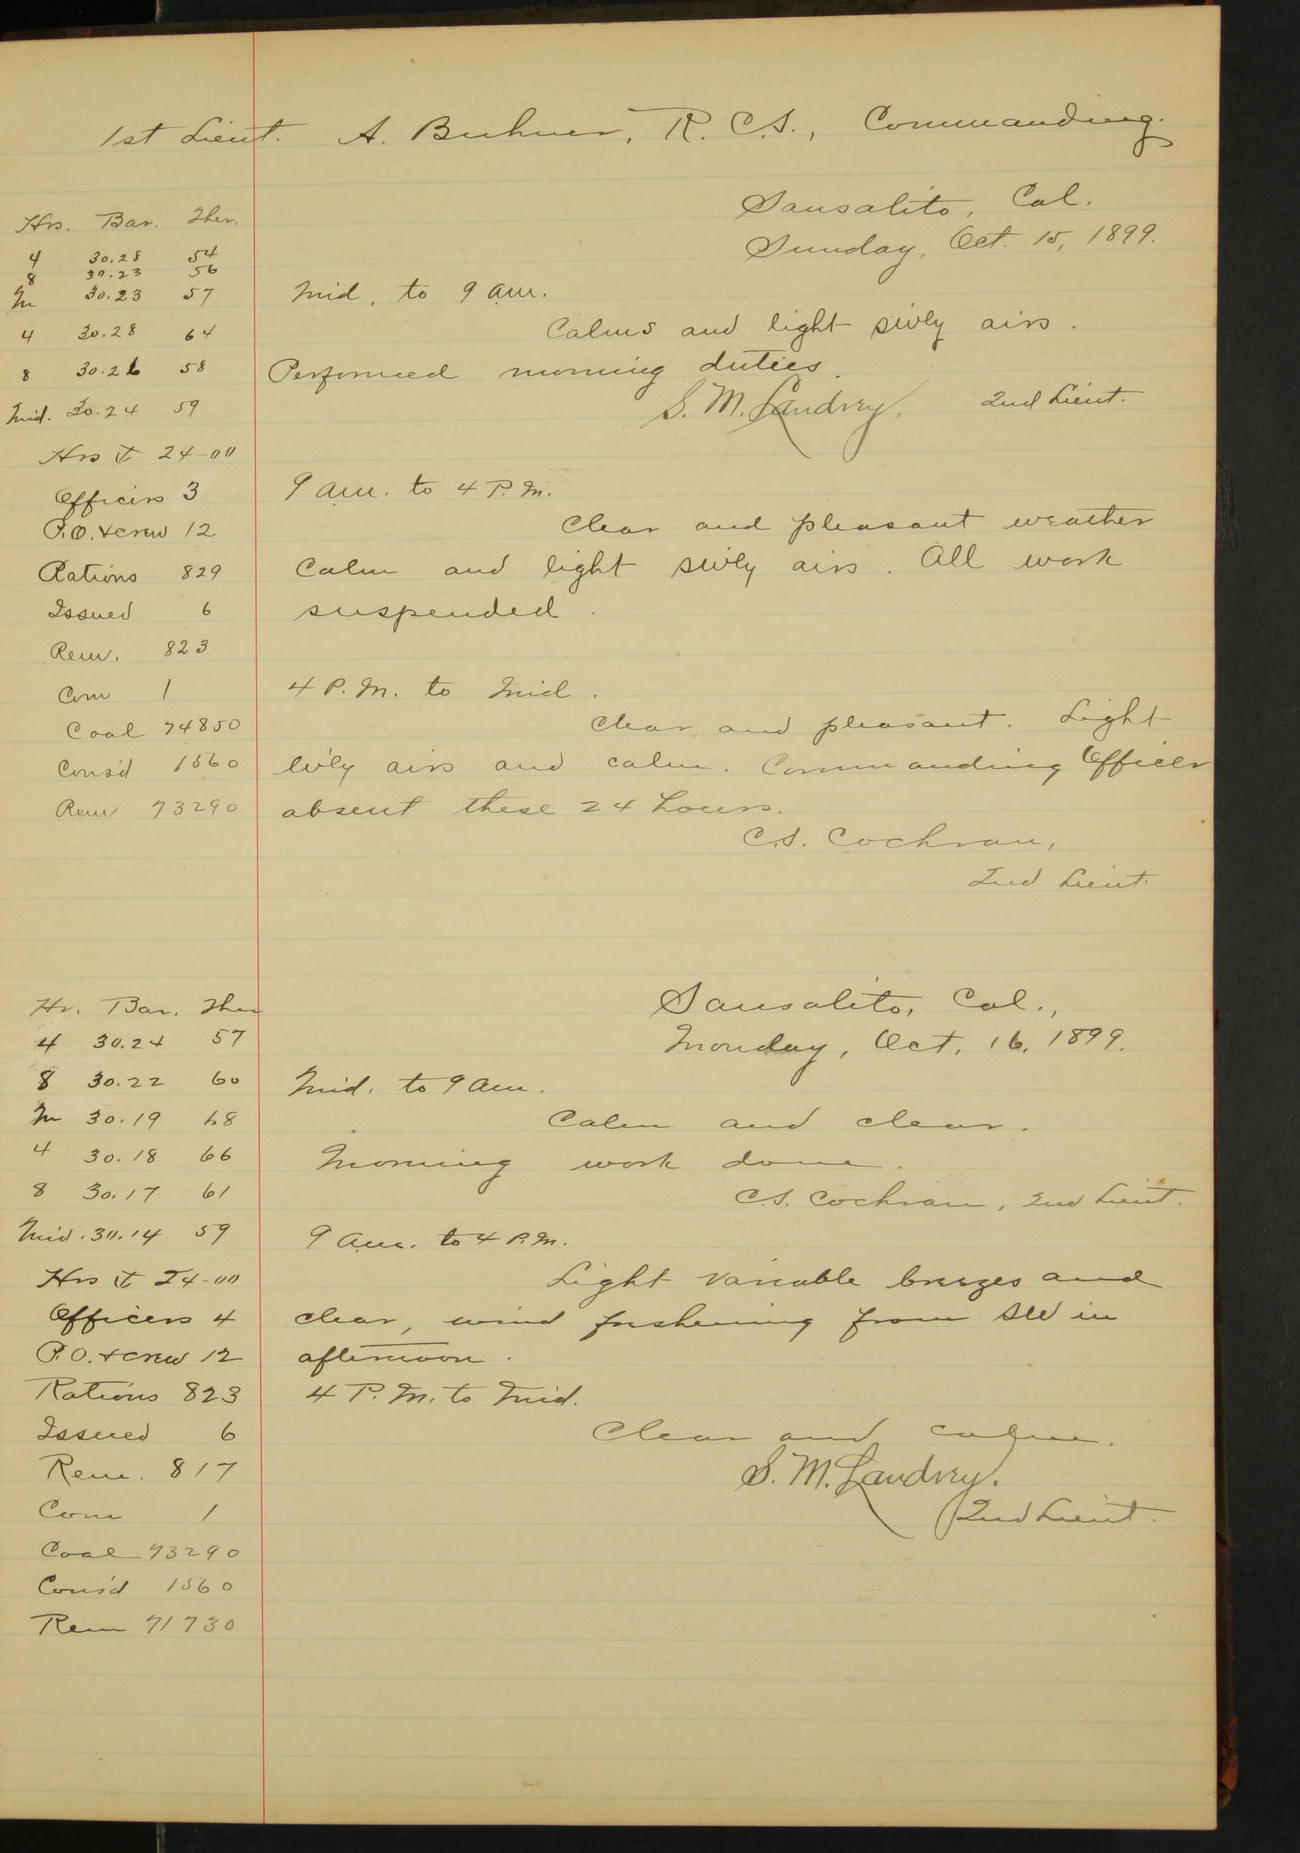 1st Lieut. A. Buhner, R. C. S., Commanding.
Sausalito, Cal.
Sunday, Oct. 15, 1899.
Hrs. Bar. Ther.
4 30.28 54
8 30.23 56
M 30.23 57
4 30.28 64
8 30.26 58
Mid. 30.24 59
Hrs 24-00
Officers 3
P.O. & crew 12
Rations 829
Issued 6
Rem. 823
Com 1
Coal 74850
Cons'd 1560
Rem 73290
Mid. to 9 am.
Calms and light swly airs.
Performed morning duties.
S. M. Landrey. 2nd Lieut.
9 am. to 4 P.M.
Clear and pleasant weather
Calm and light swly airs. All work
suspended.
4 P.M. to Mid.
Clear and pleasant. Light
airs and calm. Commanding Officer
absent these 24 hours.
C.S. Cochran,
2nd Lieut.
Sausalito, Cal.,
Monday, Oct. 16, 1899.
Hr. Bar. Ther
4 30.24 57
8 30.22 60
M 30.19 68
4 30.18 66
8 30.17 61
Mid. 30.14 59
Hrs 24-00
Officers 4
P.O. & crew 12
Rations 823
Issued 6
Rem. 817
Com 1
Coal 73290
Cons'd 1560
Rem 71730
Mid. to 9 am.
Calm and clear.
Morning work done.
C.S. Cochran, 2nd Lieut.
9 am. to 4 P.M.
Light variable breezes and
clear, wind freshening from SW in
afternoon.
4 P.M. to Mid.
Clear and calm.
S. M. Landrey.
2nd Lieut.